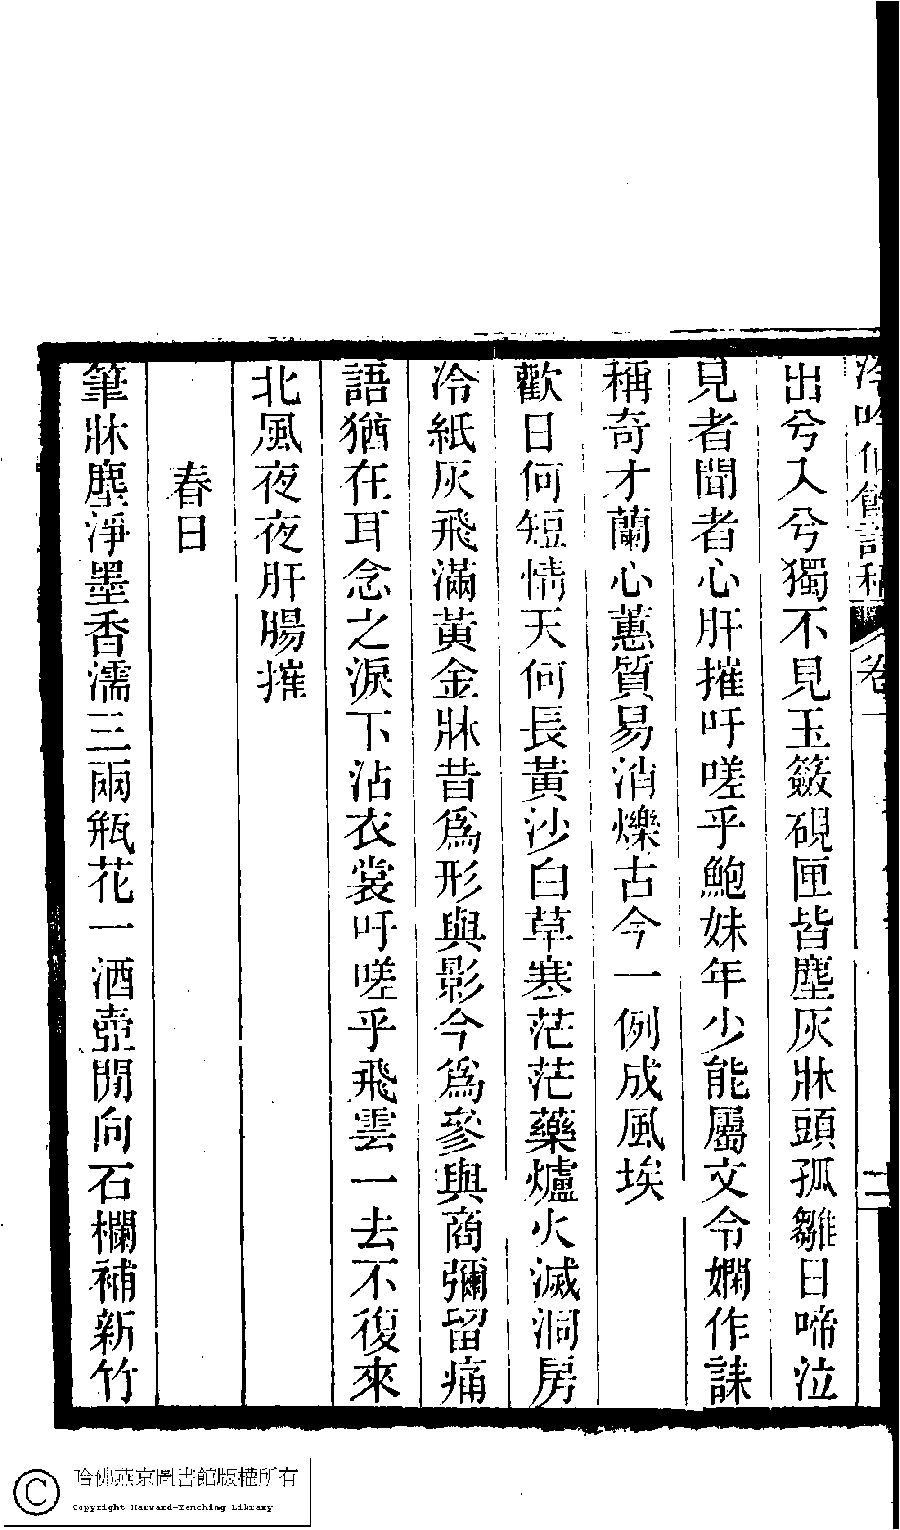 冷吟仙館詩稿 卷一 二
出兮入兮獨不見玉籢硯匣皆塵灰牀頭孤雛日啼泣
見者聞者心肝摧吁嗟乎鮑妹年少能屬文令嫻作誄
稱奇才蘭心蕙質易消爍古今一例成風埃
歡日何短情天何長黃沙白草寒茫茫藥爐火滅洞房
冷紙灰飛滿黃金牀昔爲形與影今爲參與商彌留痛
語猶在耳念之淚下沾衣裳吁嗟乎飛雲一去不復來
北風夜夜肝腸摧
春日
筆牀塵淨墨香濡三兩瓶花一酒壺閒向石欄補新竹
哈佛燕京圖書館版權所有
Copyright Harvard-Yenching Library